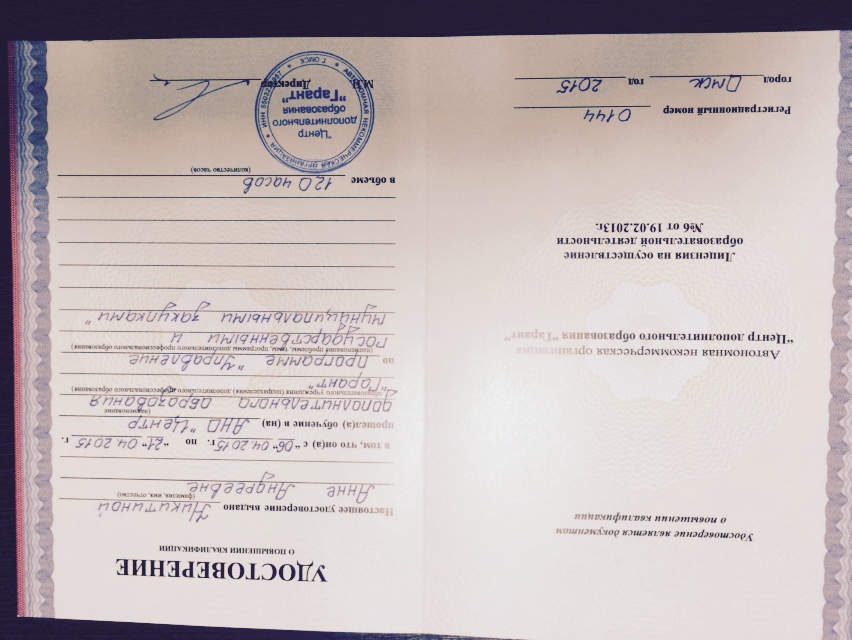 Удостоверение является документом
о повышении квалификации
Автономная некоммерческая организация
"Центр дополнительного образования "Гарант"
Лицензия на осуществление
образовательной деятельности
№6 от 19.02.2013г.
Регистрационный номер 0144
город Омск год 2015
УДОСТОВЕРЕНИЕ
О ПОВЫШЕНИИ КВАЛИФИКАЦИИ
Настоящее удостоверение выдано Никитиной
(фамилия, имя, отчество)
Анне Андреевне
в том, что он(а) с "06" 04 2015 г. по "21" 04 2015 г.
прошел(а) обучение в (на) АНО "Центр
(наименование
дополнительного образования
образовательного учреждения (подразделения) дополнительного профессионального образования)
"Гарант"
по Программе "Управление
(наименование проблемы, темы, программы дополнительного профессионального образования)
государственными и
муниципальными закупками"
в объеме 120 часов
(количество часов)
М.П. Директор
АВТОНОМНАЯ НЕКОММЕРЧЕСКАЯ ОРГАНИЗАЦИЯ * ИНН * Г. ОМСК *
"Центр
дополнительного
образования
"Гарант"